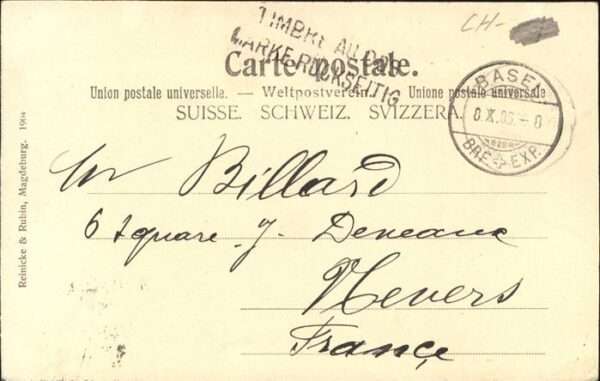 CH-
TIMBRE AU DOS
MARKE RÜCKSEITIG
Carte postale.
Union postale universelle. — Weltpostverein. — Unione postale universale
SUISSE. SCHWEIZ. SVIZZERA.
BASEL
BRF EXP.
Reinicke & Rubin, Magdeburg. 1904
Mr Billard
6 Square J. Deveaux
Nevers
France